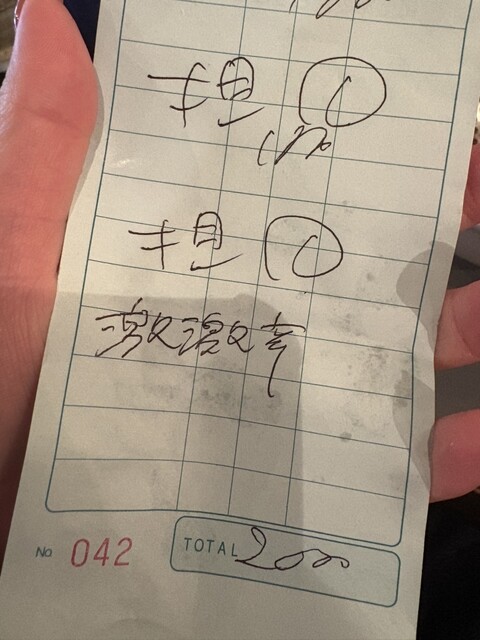 担 ①
担 ①
激激辛
No 042
TOTAL 2000